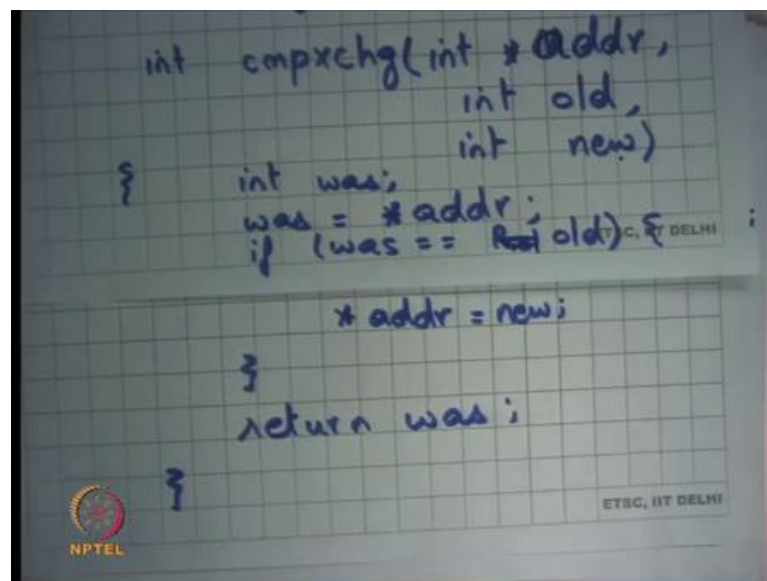 int cmpxchg(int *addr,
int old,
int new)
{ int was;
was = *addr;
if (was == old) {
ETSC, IIT DELHI
*addr = new;
}
return was;
}
ETSC, IIT DELHI
NPTEL